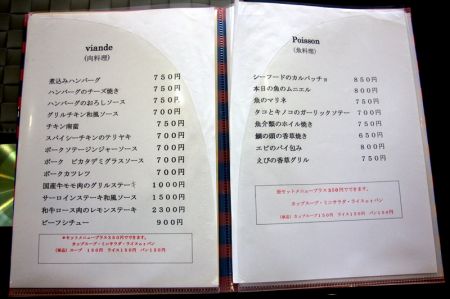 viande
(肉料理)
煮込みハンバーグ 750円
ハンバーグのチーズ焼き 750円
ハンバーグのおろしソース 750円
グリルチキン和風ソース 700円
チキン南蛮 750円
スパイシーチキンのテリヤキ 700円
ポークソテージンジャーソース 700円
ポーク ピカタデミグラスソース 700円
ポークカツレツ 700円
国産牛モモ肉のグリルステーキ 1000円
サーロインステーキ和風ソース 1500円
和牛ロース肉のレモンステーキ 2300円
ビーフシチュー 900円
*セットメニュープラス350円でできます。
カップスープ・ミニサラダ・ライスorパン
(単品) スープ 150円 ライス150円 パン150円
Poisson
(魚料理)
シーフードのカルパッチョ 850円
本日の魚のムニエル 800円
魚のマリネ 750円
タコとキノコのガーリックソテー 700円
魚介類のホイル焼き 750円
鯛の頭の香草焼き 650円
エビのパイ包み 800円
えびの香草グリル 750円
セットメニュープラス350円でできます。
カップスープ・ミニサラダ・ライスorパン
(単品) カップスープ150円 ライス150円 パン150円